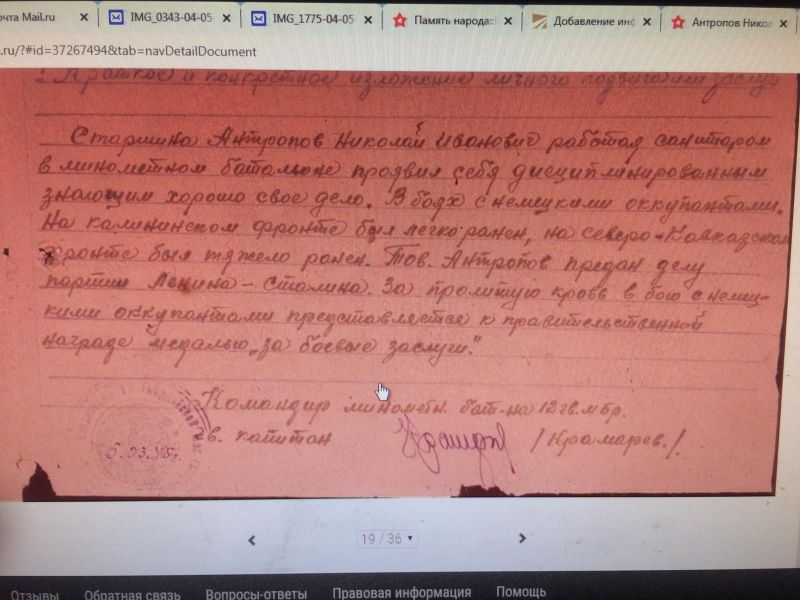 очта Mail.ru IMG_0343-04-05 IMG_1775-04-05 Память народа: Добавление инф Антропов Никол
.ru/?#id=37267494&tab=navDetailDocument
Краткое и конкретное изложение личного подвига или заслуг
Старшина Антропов Николай Иванович работая санитаром
в минометном батальоне проявил себя дисциплинированным
знающим хорошо свое дело. В боях с немецкими оккупантами.
На калининском фронте был легко ранен, на северо-Кавказском
фронте был тяжело ранен. Тов. Антропов предан делу
партии Ленина – Сталина. За пролитую кровь в бою с немец-
кими оккупантами представляется к правительственной
награде медалью „за боевые заслуги."
Командир минометн. бат-на 12 гв. мбр.
гв. капитан /Крамарев./
19 / 36
Отзывы Обратная связь Вопросы-ответы Правовая информация Помощь